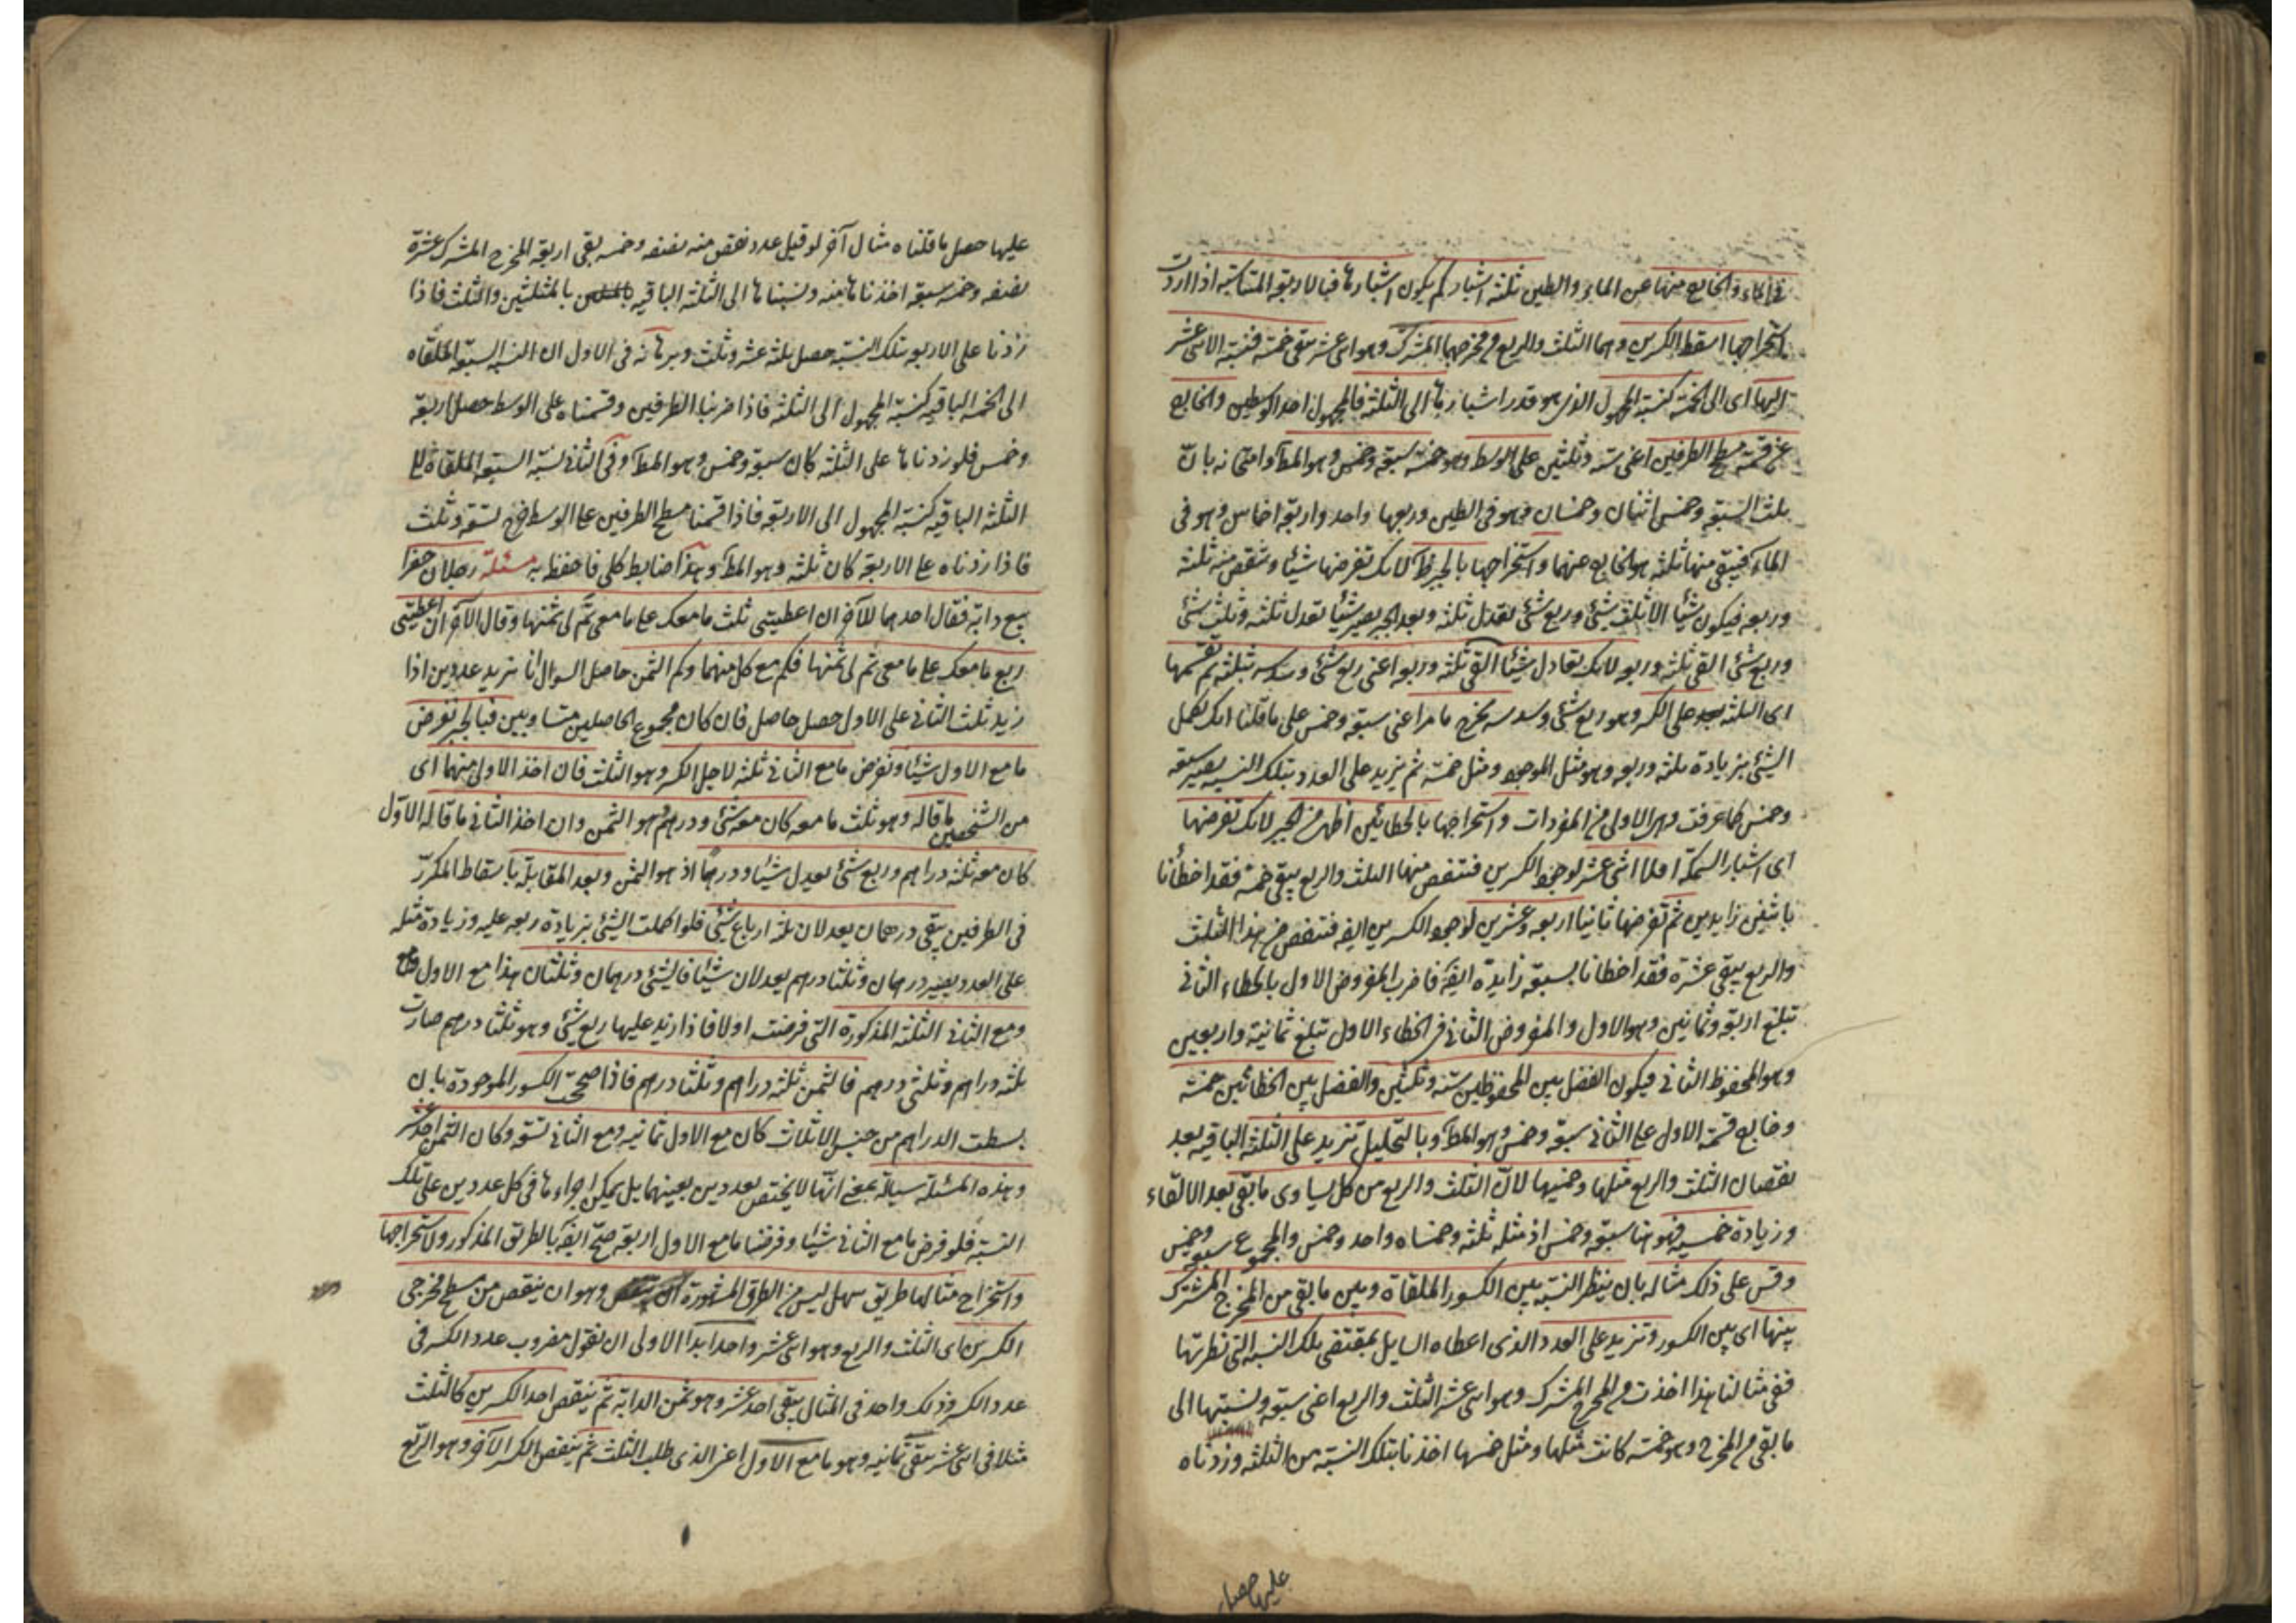 في الماء والخارج منها عن الماء والطين ثلثة اشبار كم يكون اشبارها فبالاربعة المتناسبة اذا اردت
استخراجها اسقط الكسرين وهما الثلث والربع من مخرجهما المشترك وهو اثنى عشر يبقى خمسة فنسبة الاثنى عشر
اليها اى الى الخمسة كنسبة المجهول الذى هو قدر اشبارها الى الثلثة فالمجهول احد الوسطين والخارج
من قسمة مسطح الطرفين اعنى ستة وثلثين على الوسط وهو خمسة سبعة وخمس وهو المط وامتحانه بان
ثلث السبعة وخمس اثنان وخمسان فهو فى الطين وربعها واحد واربعة اخماس وهو فى
الماء فيبقى منها ثلثة هو الخارج عنهما واستخراجها بالجبر ظ لانك تفرضها شيئا وتنقص منه ثلثه
وربعه فيكون شيئا الا ثلث شئ وربع شئ تعدل ثلثة وبعد الجبر يصير شيئا تعدل ثلثة وثلث شئ
وربع شئ القى ثلثه وربعه لانك تعادل شيئا القى ثلثه وربعه اعنى ربع شئ وسدسه بثلثة ثم تقسمها
اى الثلثة على الكسر وهو ربع شئ وسدسه يخرج ما مر اعنى سبعة وخمس على ما قلنا انك تكمل
الشئ بزيادة ثلثه وربعه وهو مثل الموجود ومثل خمسه ثم تزيد على العدد بتلك النسبة يصير سبعة
وخمس كما عرفت وهو الاولى من المفردات واستخراجها بالخطائين اظهر من الجبر لانك تفرضها
اى اشبار السمكة اولا اثنى عشر لوجود الكسرين فتنقص منها الثلث والربع يبقى خمسة فقد اخطأنا
باثنين زايدين ثم تفرضها ثانيا اربعة وعشرين لوجود الكسرين ايضه فتنقص من هذا الثلث
والربع يبقى عشرة فقد اخطانا بسبعة زايدة ايضه فاضرب المفروض الاول بالخطاء الثانى
تبلغ اربعة وثمانين وهو الاول والمفروض الثانى فى الخطاء الاول تبلغ ثمانية واربعين
وهو المحفوظ الثانى فيكون الفضل بين المحفوظين ستة وثلثين والفضل بين الخطائين خمسة
وخارج قسمة الاول على الثانى سبعة وخمس وهو المط وبالتحليل تزيد على الثلثة الباقية بعد
نقصان الثلث والربع مثلها وخمسيها لان الثلث والربع من كل يساوى ما بقى بعد الالقاء
وزيادة خمسيه فهو هنا سبعة وخمس اذ مثله ثلثة وخمساه واحد وخمس والمجموع سبعة وخمس
وقس على ذلك مثاله بان ينظر النسبة بين الكسور الملقاة وبين ما بقى من المخرج المشترك
بينها اى بين الكسور وتزيد على العدد الذى اعطاه السايل بمقتضى تلك النسبة التى نظرتها
ففى مثالنا هذا اخذت من المخرج المشترك وهو اثنى عشر الثلث والربع اعنى سبعة ونسبتها الى
ما بقى من المخرج وهو خمسة كانت مثلها ومثل خمسها اخذنا بتلك النسبة من الثلثة وزدناه
عليها حصل
عليها حصل ما قلناه مثال آخر لو قيل عدد نقص منه نصفه وخمسه بقى اربعة المخرج المشترك عشرة
نصفه وخمسه سبعة اخذناها منه ونسبناها الى الثلثة الباقية بالمثلثين والثلث فاذا
زدنا على الاربعة بتلك النسبة حصل ثلثة عشر وثلث وبرهانه فى الاول ان النسبة السبعة الملقاه
الى الخمسة الباقية كنسبة المجهول الى الثلثة فاذا ضربنا الطرفين وقسمناه على الوسط حصل اربعة
وخمس فلو زدناها على الثلثة كان سبعة وخمس وهو المط وفى الثانى نسبة السبعة الملقاة الى
الثلثة الباقية كنسبة المجهول الى الاربعة فاذا قسمنا مسطح الطرفين على الوسط خرج تسعة وثلث
فاذا زدناه على الاربعة كان ثلثة وهو المط وهذا ضابط كلى فاحفظ به مسئلة رجلان حضرا
بيع دابة فقال احدهما للآخر ان اعطيتنى ثلث ما معك على ما معى تم لى ثمنها وقال الآخر ان اعطيتنى
ربع ما معك على ما معى تم لى ثمنها فكم مع كل منهما وكم الثمن حاصل السوال انا نريد عددين اذا
زيد ثلث الثانى على الاول حصل حاصل فان كان مجموع الحاصلين متساويين فبالجبر تفرض
ما مع الاول شيئا وتفرض ما مع الثانى ثلثة لاجل الكسر وهو الثلث فان اخذ الاول منهما اى
من الشخصين ما قاله وهو ثلث ما معه كان معه شئ ودرهم وهو الثمن وان اخذ الثانى ما قاله الاول
كان معه ثلثة دراهم وربع شئ يعدل شيئا ودرهما اذ هو الثمن وبعد المقابلة باسقاط المكرر
فى الطرفين يبقى درهمان يعدلان ثلثة ارباع شئ فلو اكملت الشئ بزيادة ربعه عليه وزيادة مثله
على العدد يصير درهمان وثلثا درهم يعدلان شيئا فالشئ درهمان وثلثان هذا مع الاول
ومع الثانى الثلثة المذكورة التى فرضت اولا فاذا زيد عليها ربع شئ وهو ثلثا درهم صارت
ثلثة دراهم وثلثى درهم فالثمن ثلثة دراهم وثلثا درهم فاذا صححت الكسور الموجودة بان
بسطت الدراهم من جنس الاثلاث كان مع الاول ثمانية ومع الثانى تسعة وكان الثمن احد عشر
وهذه المسئلة سيالة بمعنى انها لا يختص بعددين بعينهما بل يمكن اجراءها فى كل عددين على تلك
النسبة فلو فرض ما مع الثانى شيئا وفرضنا ما مع الاول اربعة صح ايضه بالطريق المذكور ولاستخراجها
واستخراج مثالها طريق سهل ليس من الطرق المشهورة وهو ان ينقص من مسطح مخرجى
الكسرين اى الثلث والربع وهو اثنى عشر واحد ابدا الاولى ان نقول مضروب عدد الكسر فى
عدد الكسر وذلك واحد فى المثال يبقى احد عشر وهو ثمن الدابة ثم ينقص احد الكسرين كالثلث
مثلا فى اثنى عشر يبقى ثمانية وهو ما مع الاول اعنى الذى طلب الثلث ثم ينقص الكسر الآخر وهو الربع